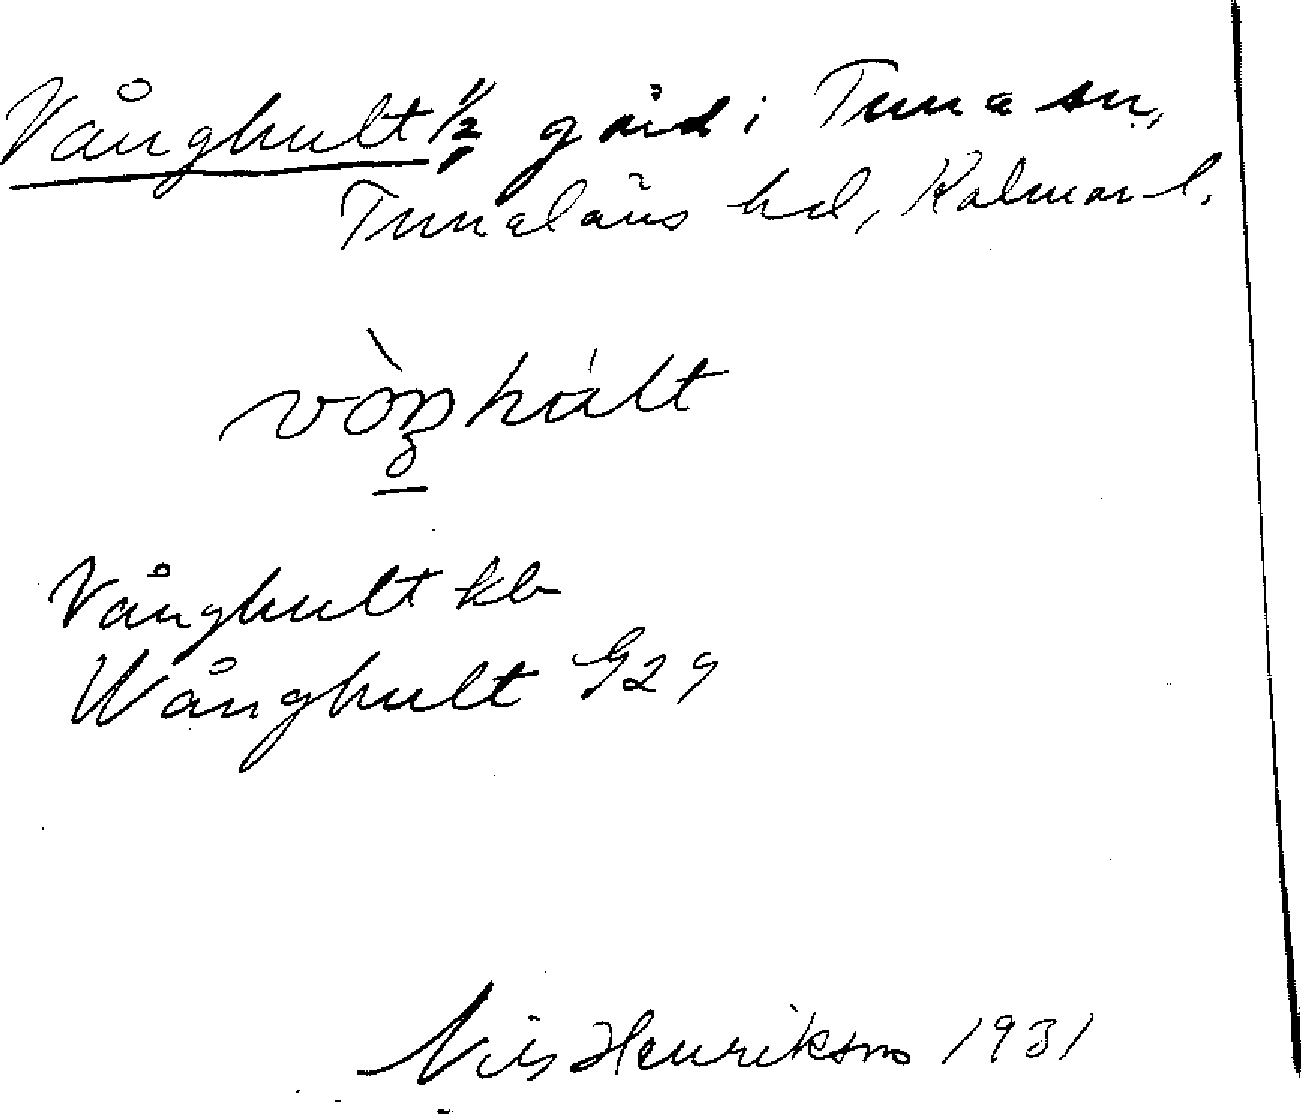 Vånghult ½ gård i Tuna sn,
Tunaläns hd, Kalmar l.
Vånghult kb
Wånghult G29
Nils Henriksson 1931